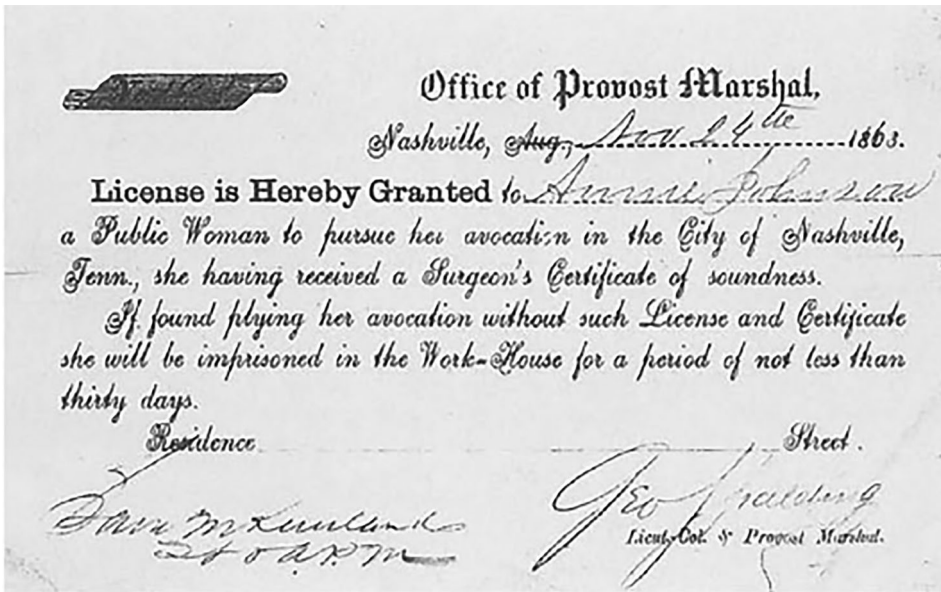 Office of Provost Marshal,
Nashville, Aug., Nov. 24th 1863.
License is Hereby Granted to Annie Johnson
a Public Woman to pursue her avocation in the City of Nashville,
Tenn., she having received a Surgeon's Certificate of soundness.
If found plying her avocation without such License and Certificate
she will be imprisoned in the Work-House for a period of not less than
thirty days.
Residence Street.
Geo Spalding
Lieut.-Col. & Provost Marshal.